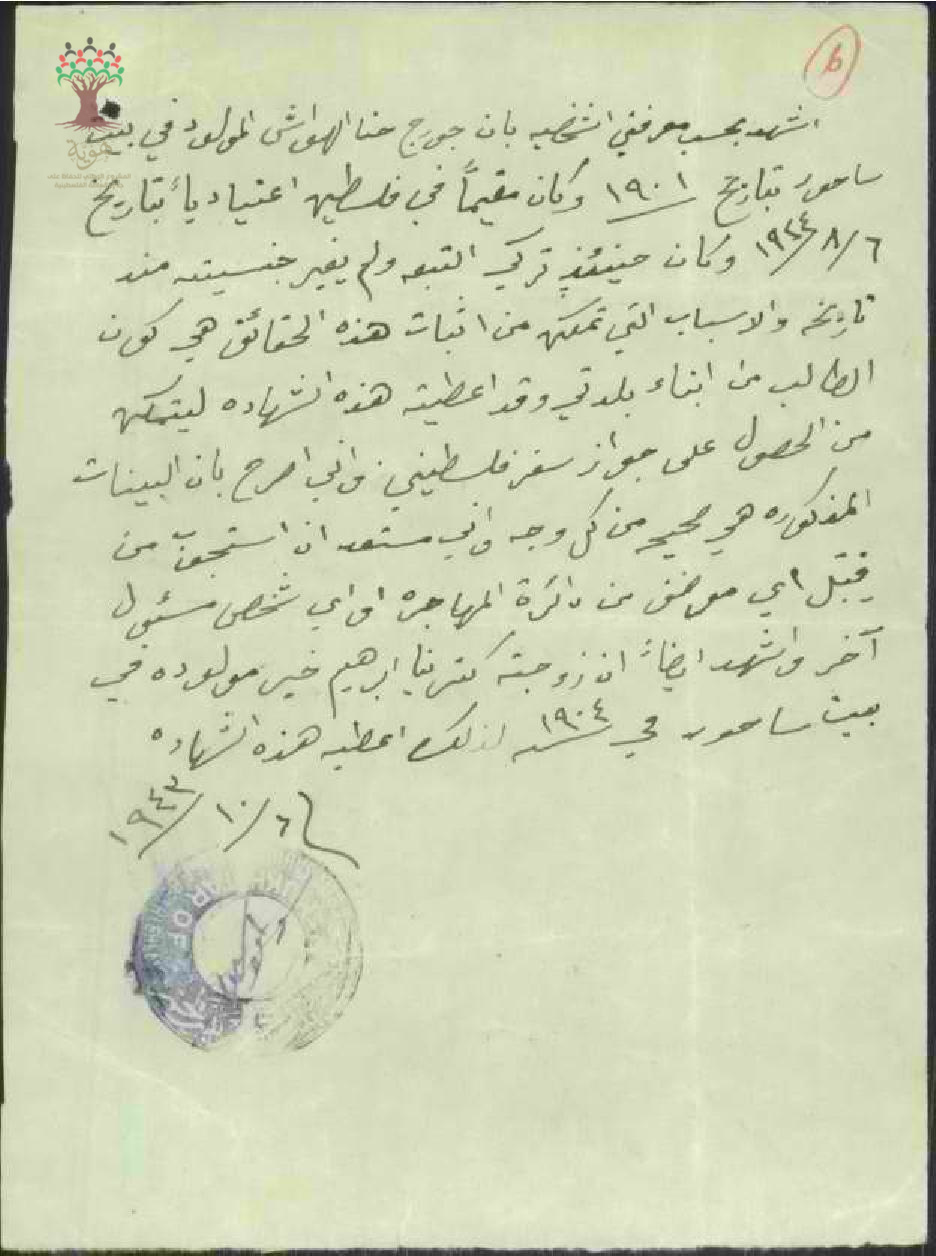 6
هوية
اشهد بحسب معرفتي الشخصيه بان جورج حنا الهواش المولود في بيت
ساحور بتاريخ ١٩٠١ وكان مقيماً في فلسطين اعتيادياً بتاريخ
٦/٨/١٩٢٤ وكان حينئذٍ تركي التبعه ولم يغير جنسيته منذ
تاريخه والاسباب التي تمكن من اثبات هذه الحقائق هي كون
الطالب من ابناء بلدتي وقد اعطيته هذه الشهاده ليتمكن
من الحصول على جواز سفر فلسطيني واني اصرح بان البينات
المذكوره هي صحيحه من كل وجه واني مستعد ان استجوب من
قبل اي موظف من دائرة المهاجره او اي شخص مسئول
آخر واشهد ايضاً ان زوجته كترينا ابرهيم خير مولوده في
بيت ساحور في سنه ١٩٠٤ لذلك اعطيه هذه الشهاده
٦/١٠/١٩٤٣
R OF